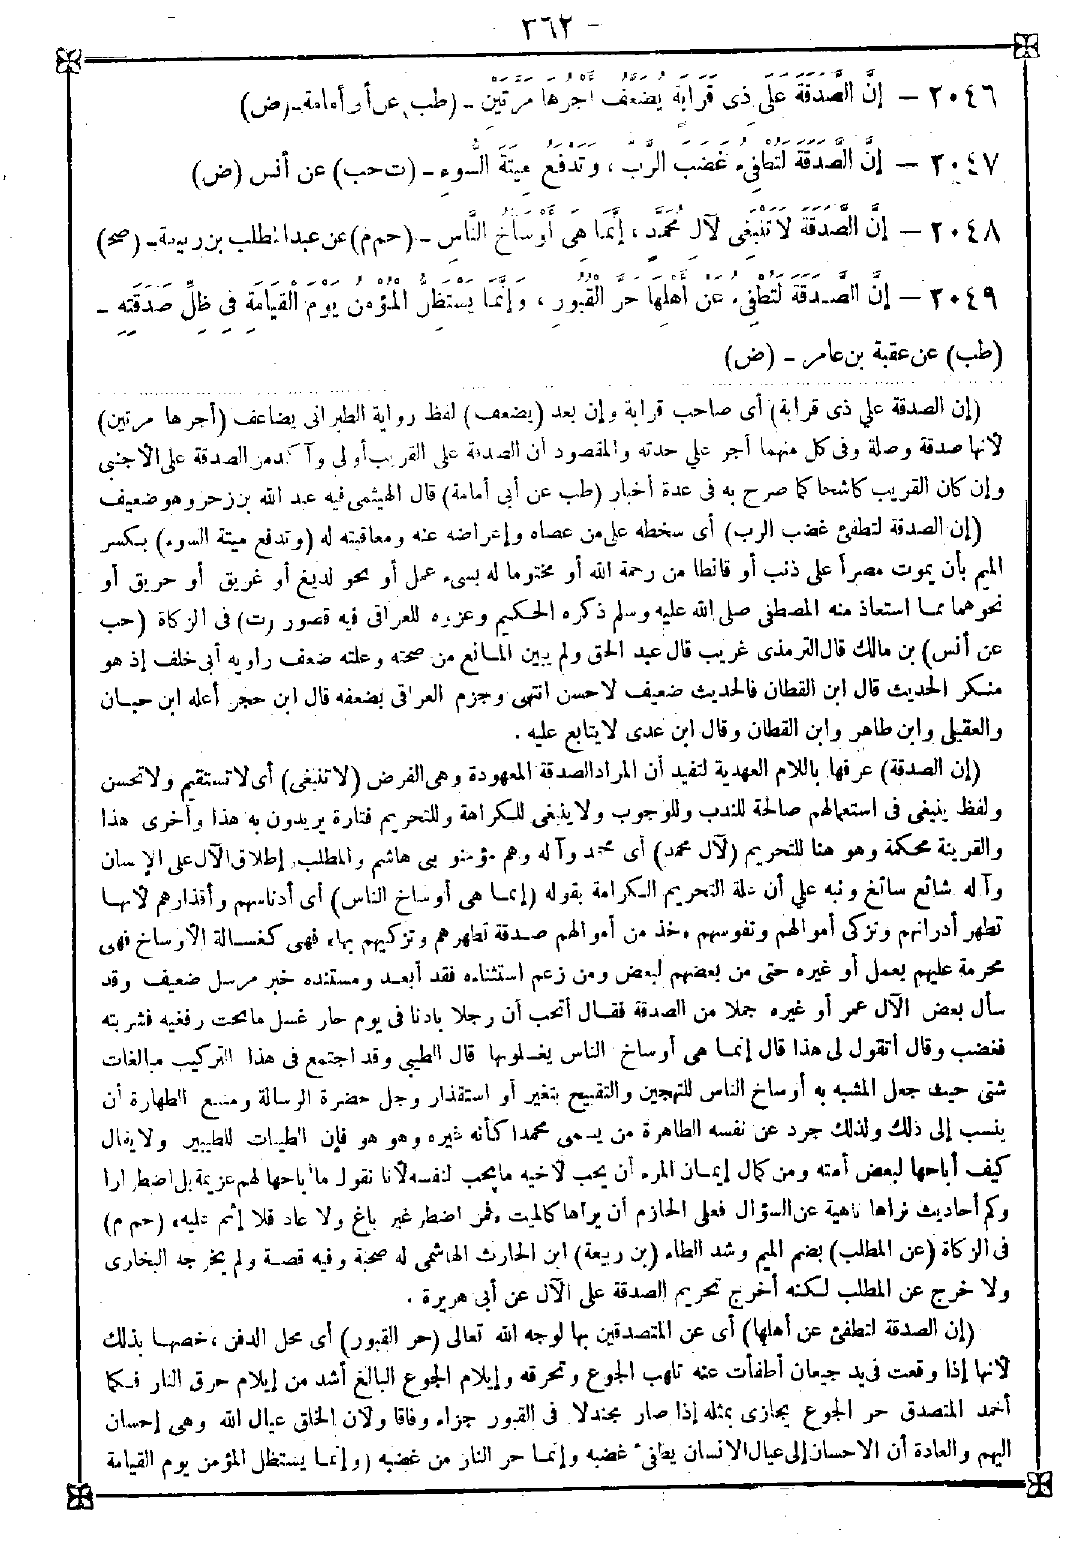 - ٣٦٢
٢٠٤٦ - إنَّ الصَّدَقَةَ عَلَى ذِى قَرَابَةٍ يُضَعَّفُ أَجْرُهَا مَرَّتَيْنِ - (طب) عن أبى أمامة - (ض)
٢٠٤٧ - إنَّ الصَّدَقَةَ لَتُطْفِئُ غَضَبَ الرَّبِّ ، وَتَدْفَعُ مِيتَةَ السُّوءِ - (ت حب) عن أنس (ض)
٢٠٤٨ - إنَّ الصَّدَقَةَ لَا تَنْبَغِى لآلِ مُحَمَّدٍ ، إنَّمَا هِىَ أَوْسَاخُ النَّاسِ - (حم م) عن عبد المطلب بن ربيعة - (صح)
٢٠٤٩ - إنَّ الصَّدَقَةَ لَتُطْفِئُ عَنْ أَهْلِهَا حَرَّ الْقُبُورِ ، وَإنَّمَا يَسْتَظِلُّ الْمُؤْمِنُ يَوْمَ الْقِيَامَةِ فِى ظِلِّ صَدَقَتِهِ -
(طب) عن عقبة بن عامر - (ض)
(إن الصدقة على ذى قرابة) أى صاحب قرابة وإن بعد (يضعف) لفظ رواية الطبرانى يضاعف (أجرها مرتين)
لأنها صدقة وصلة وفى كل منهما أجر على حدته والمقصود أن الصدقة على القريب أولى وآكد من الصدقة على الأجنبى
وإن كان القريب كاشحا كما صرح به فى عدة أخبار (طب عن أبى أمامة) قال الهيثمى فيه عبد الله بن زحر وهو ضعيف
(إن الصدقة لتطفئ غضب الرب) أى سخطه على من عصاه وإعراضه عنه ومعاقبته له (وتدفع ميتة السوء) بكسر
الميم بأن يموت مصراً على ذنب أو قانطا من رحمة الله أو مختوما له بسىء عمل أو نحو لديغ أو غريق أو حريق أو
نحوهما مما استعاذ منه المصطفى صلى الله عليه وسلم ذكره الحكيم وعزوه للعراقى فيه قصور (ت) فى الزكاة (حب
عن أنس) بن مالك قال الترمذى غريب قال عبد الحق ولم يبين المانع من صحته وعلته ضعف راويه أبى خلف إذ هو
منكر الحديث قال ابن القطان فالحديث ضعيف لا حسن انتهى وجزم العراقى بضعفه قال ابن حجر أعله ابن حبان
والعقيلى وابن طاهر وابن القطان وقال ابن عدى لا يتابع عليه .
(إن الصدقة) عرفها باللام العهدية لتفيد أن المراد الصدقة المعهودة وهى الفرض (لا تنبغى) أى لا تستقيم ولا تحسن
ولفظ ينبغى فى استعمالهم صالحة للندب وللوجوب ولا ينبغى للكراهة وللتحريم فتارة يريدون به هذا وأخرى هذا
والقرينة محكمة وهو هنا للتحريم (لآل محمد) أى محمد وآله وهم مؤمنو بنى هاشم والمطلب إطلاق الآل على الإنسان
وآله شائع سائغ ونبه على أن علة التحريم الكرامة بقوله (إنما هى أوساخ الناس) أى أدناسهم وأقذارهم لأنها
تطهر أدرانهم وتزكى أموالهم ونفوسهم «خذ من أموالهم صدقة تطهرهم وتزكيهم بها» فهى كغسالة الأوساخ فهى
محرمة عليهم بعمل أو غيره حتى من بعضهم لبعض ومن زعم استثناءه فقد أبعد ومستنده خبر مرسل ضعيف وقد
سأل بعض الآل عمر أو غيره جملا من الصدقة فقال أتحب أن رجلا بادنا فى يوم حار غسل ما تحت رفغيه فشربته
فغضب وقال أتقول لى هذا قال إنما هى أوساخ الناس يغسلونها قال الطيبى وقد اجتمع فى هذا التركيب مبالغات
شتى حيث جعل المشبه به أوساخ الناس للتهجين والتقبيح بتغير أو استقذار وجل حضرة الرسالة ومنبع الطهارة أن
ينسب إلى ذلك ولذلك جرد عن نفسه الطاهرة من يسمى محمدا كأنه غيره وهو هو فإن الطيبات للطيبين ولا يقال
كيف أباحها لبعض أمته ومن كمال إيمان المرء أن يحب لأخيه ما يحب لنفسه لأنا نقول ما أباحها لهم عزيمة بل اضطرارا
وكم أحاديث نراها ناهية عن السؤال فعلى الحازم أن يراها كالميتة «فمن اضطر غير باغ ولا عاد فلا إثم عليه» (حم م)
فى الزكاة (عن المطلب) بضم الميم وشد الطاء (بن ربيعة) ابن الحارث الهاشمى له صحبة وفيه قصة ولم يخرجه البخارى
ولا خرج عن المطلب لكنه أخرج تحريم الصدقة على الآل عن أبى هريرة .
(إن الصدقة لتطفئ عن أهلها) أى عن المتصدقين بها لوجه الله تعالى (حر القبور) أى محل الدفن ، خصها بذلك
لأنها إذا وقعت فى يد جيعان أطفأت عنه تلهب الجوع وتحرقه وإيلام الجوع البالغ أشد من إيلام حرق النار فكما
أخمد المتصدق حر الجوع يجازى بمثله إذا صار مجندلا فى القبور جزاء وفاقا ولأن الخلق عيال الله وهى إحسان
اليهم والعادة أن الاحسان إلى عيال الانسان يطفئ غضبه وإنما حر النار من غضبه (وإنما يستظل المؤمن يوم القيامة